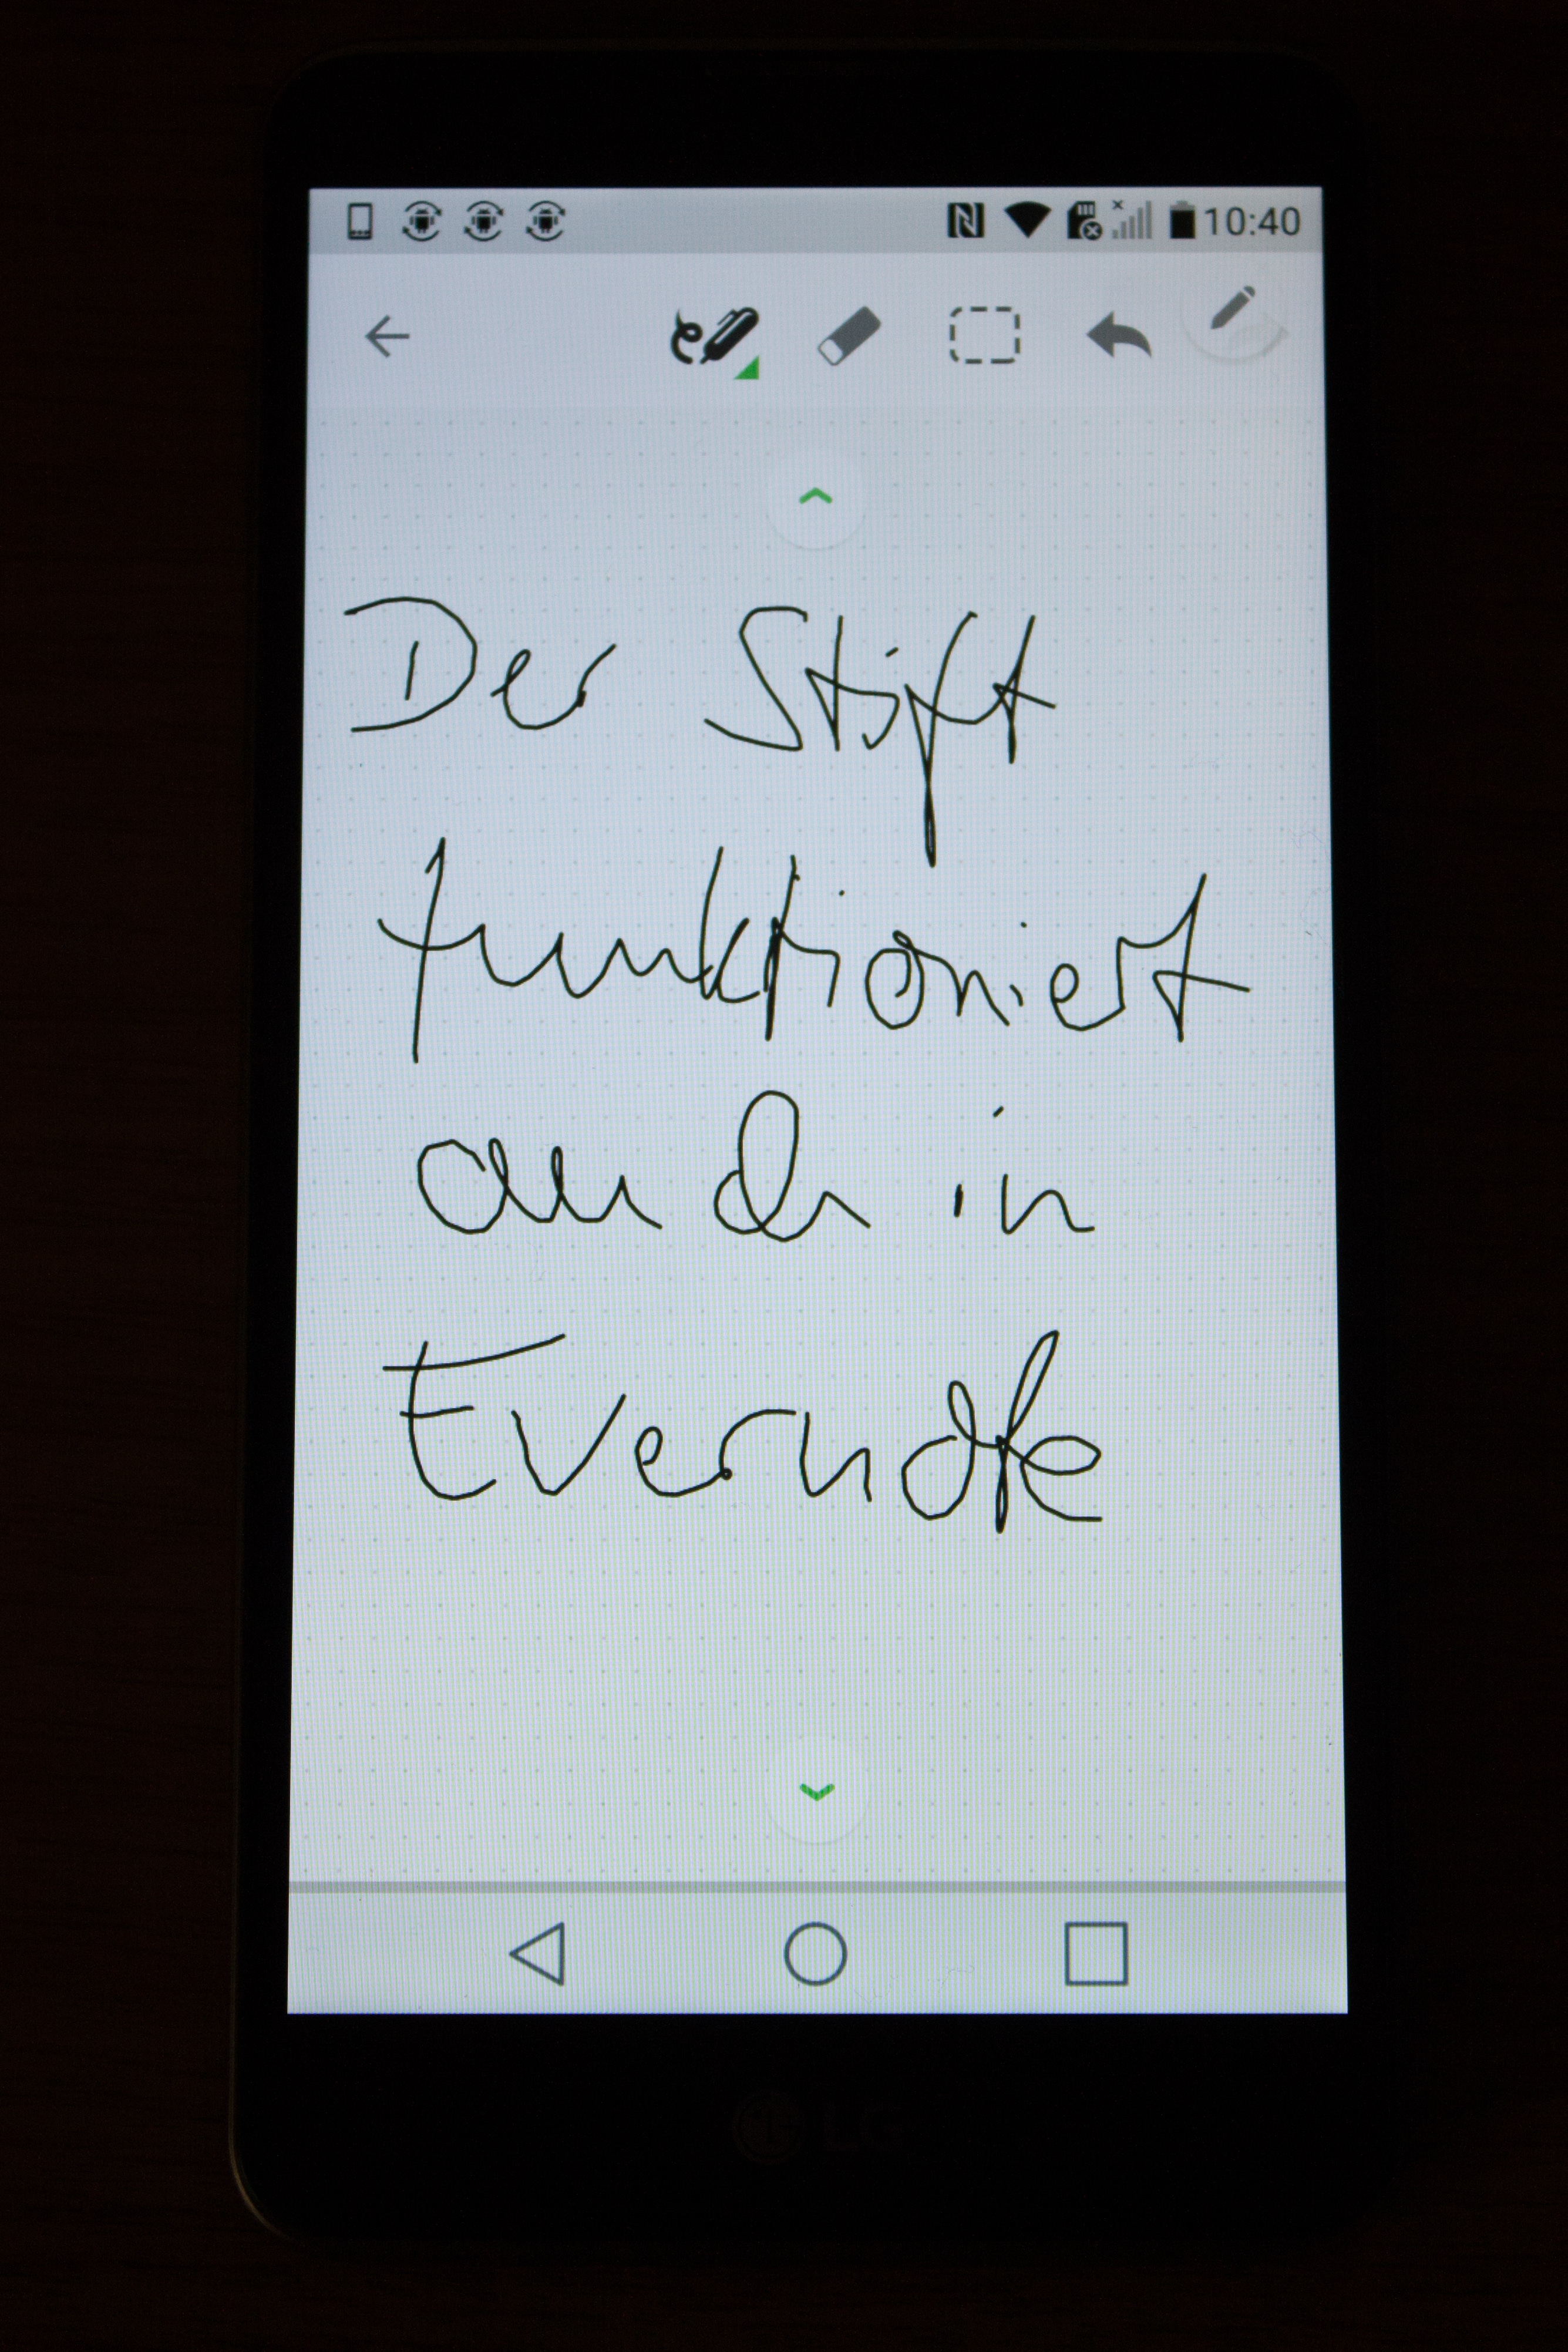 10:40
Der Stift
funktioniert
auch in
Evernote
LG